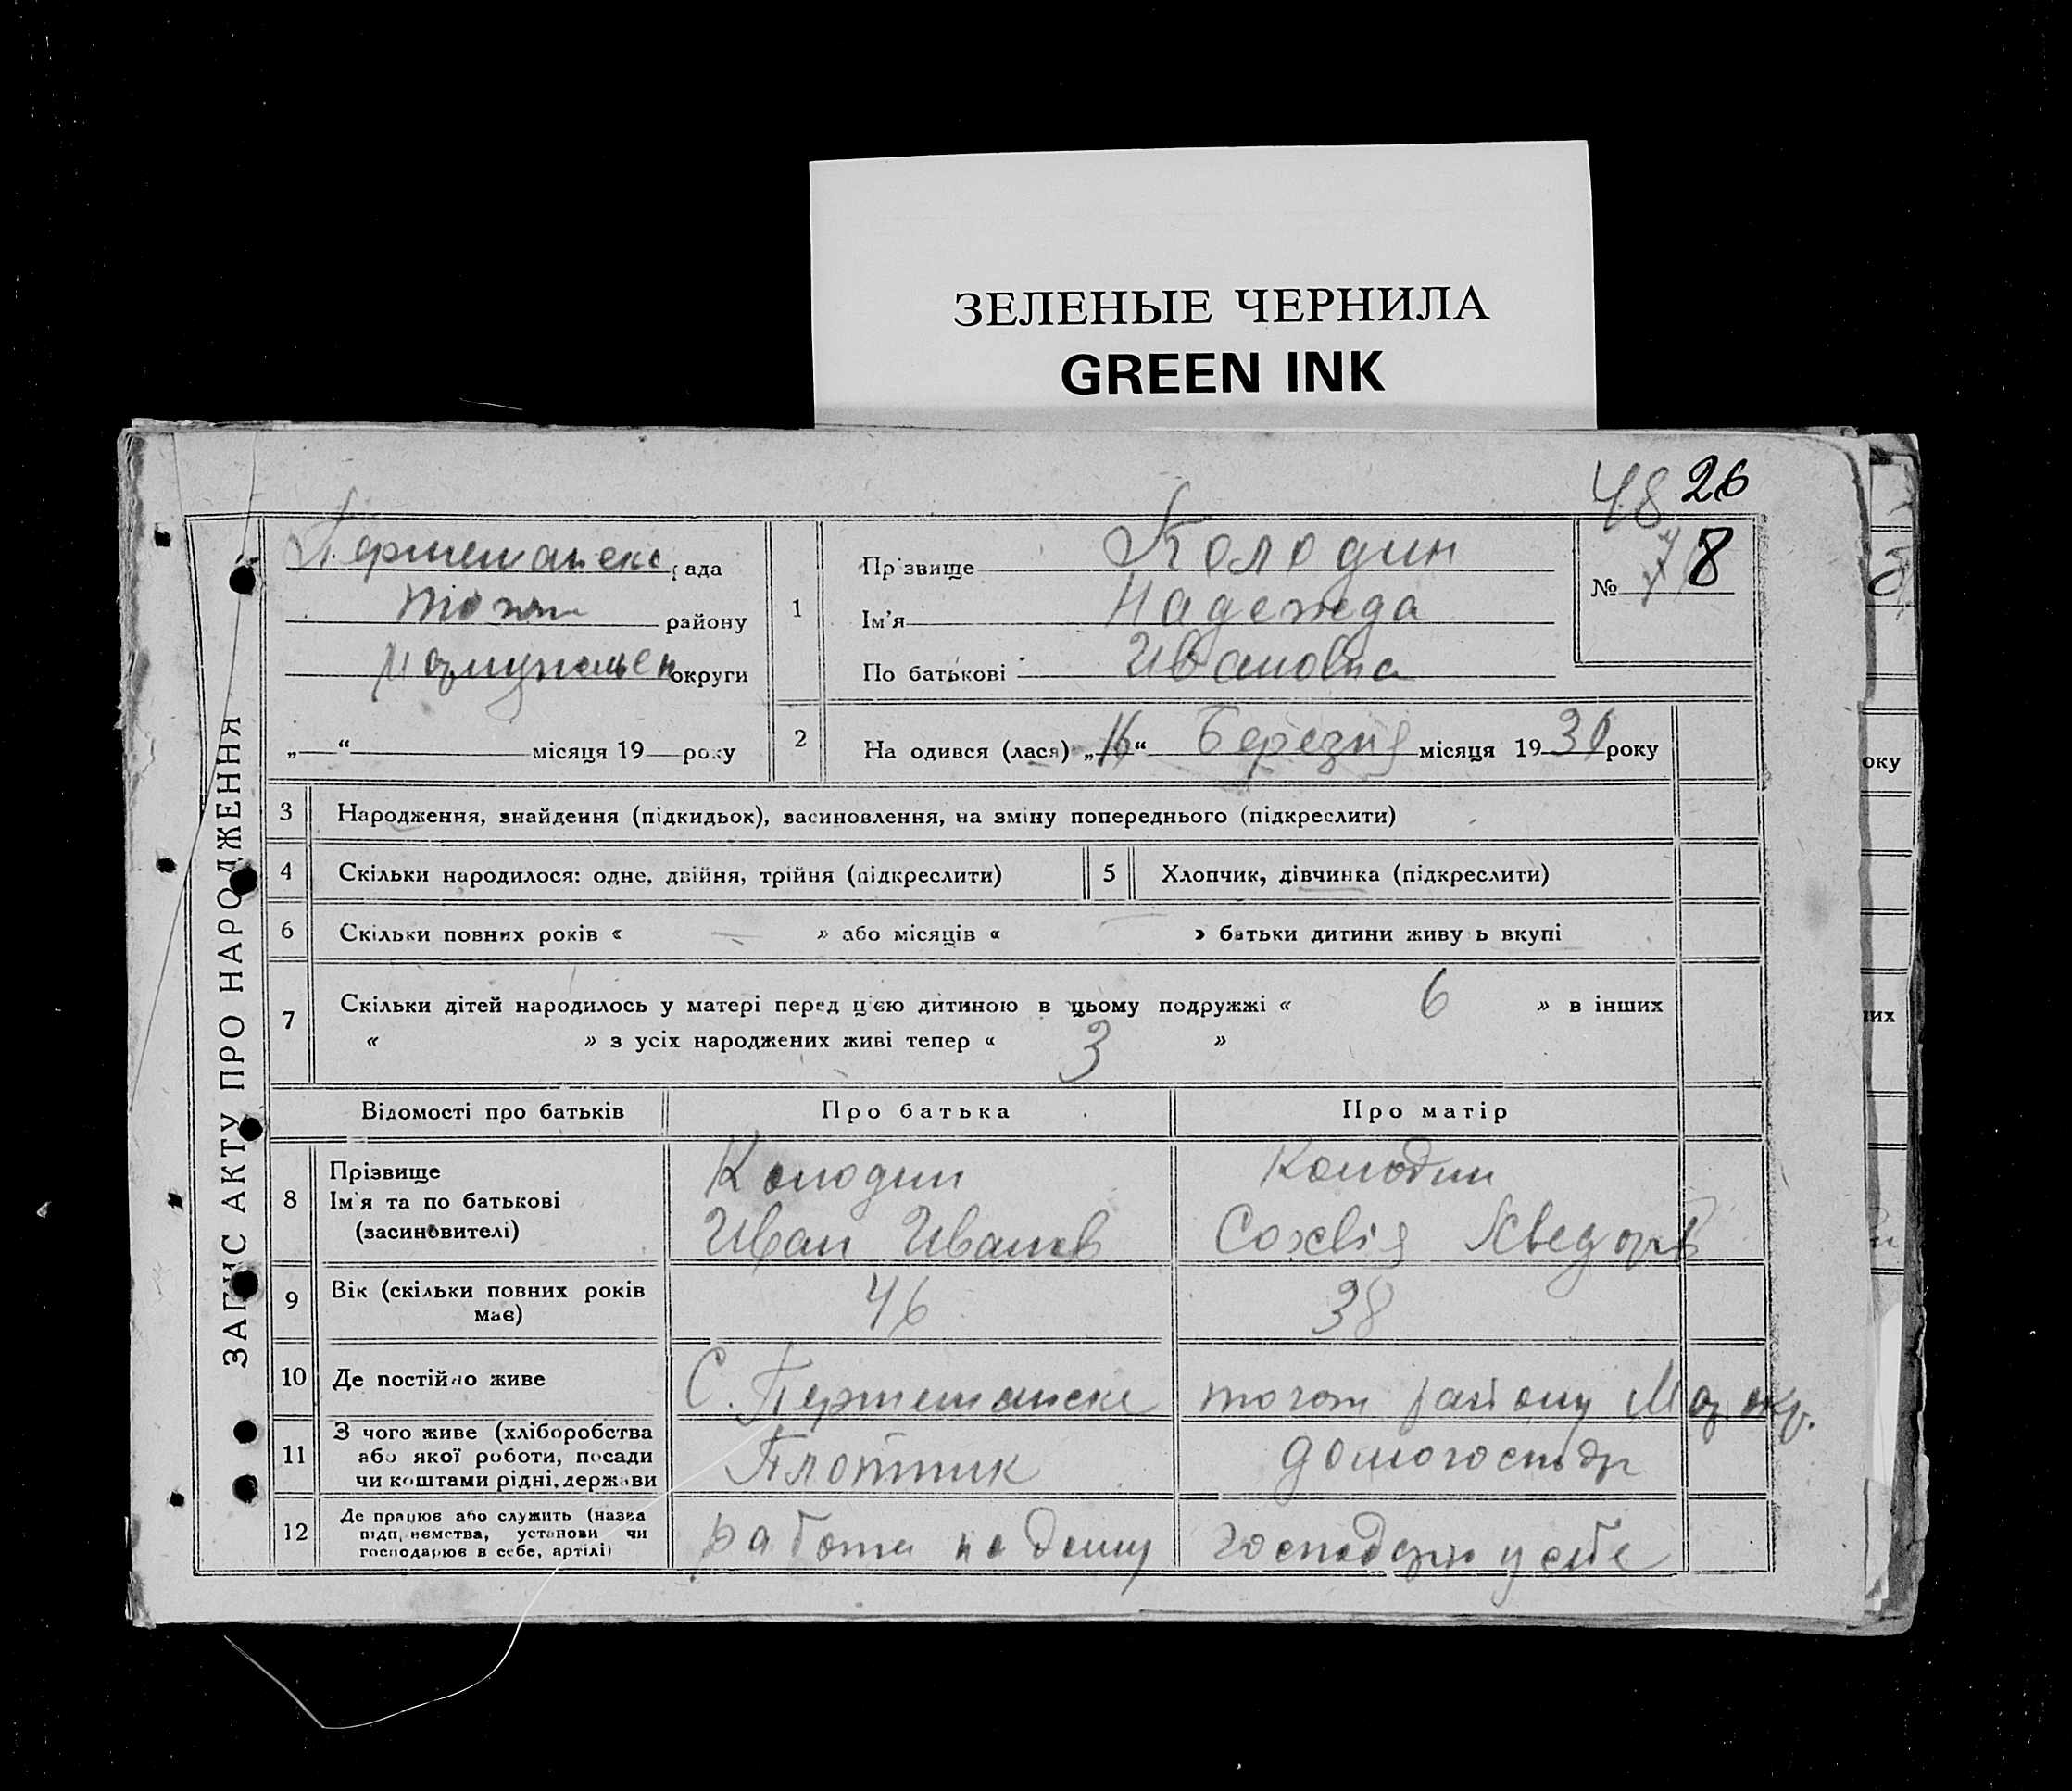 ЗЕЛЕНЫЕ ЧЕРНИЛА
GREEN INK
48 26
ЗАПИС АКТУ ПРО НАРОДЖЕННЯ
рада
району
округи
„ “ місяця 19 року
1
Прізвище Колодин
Ім'я Надежда
По батькові Ивановна
№ 8
2
На одився (лася) „16“ Березня місяця 1930 року
3 Народження, знайдення (підкидьок), засиновлення, на зміну попереднього (підкреслити)
4 Скільки народилося: одне, двійня, трійня (підкреслити)
5 Хлопчик, дівчинка (підкреслити)
6 Скільки повних років « — » або місяців « — » батьки дитини живу ь вкупі
7 Скільки дітей народилось у матері перед цією дитиною в цьому подружжі « 6 » в інших
« » з усіх народжених живі тепер « 3 »
Відомості про батьків
Про батька
Про матір
8 Прізвище
Ім'я та по батькові
(засиновителі)
Колодин
Иван Иванов
Колодин
Сохвія Хведоров
9 Вік (скільки повних років
має)
46
38
10 Де постійно живе
С.
району
11 З чого живе (хліборобства
або якої роботи, посади
чи коштами рідні, держави
Плотник
домогосподар
12 Де працює або служить (назва
підприємства, установи чи
господарює в себе, артілі)
работа на дому
у себе
оку
их